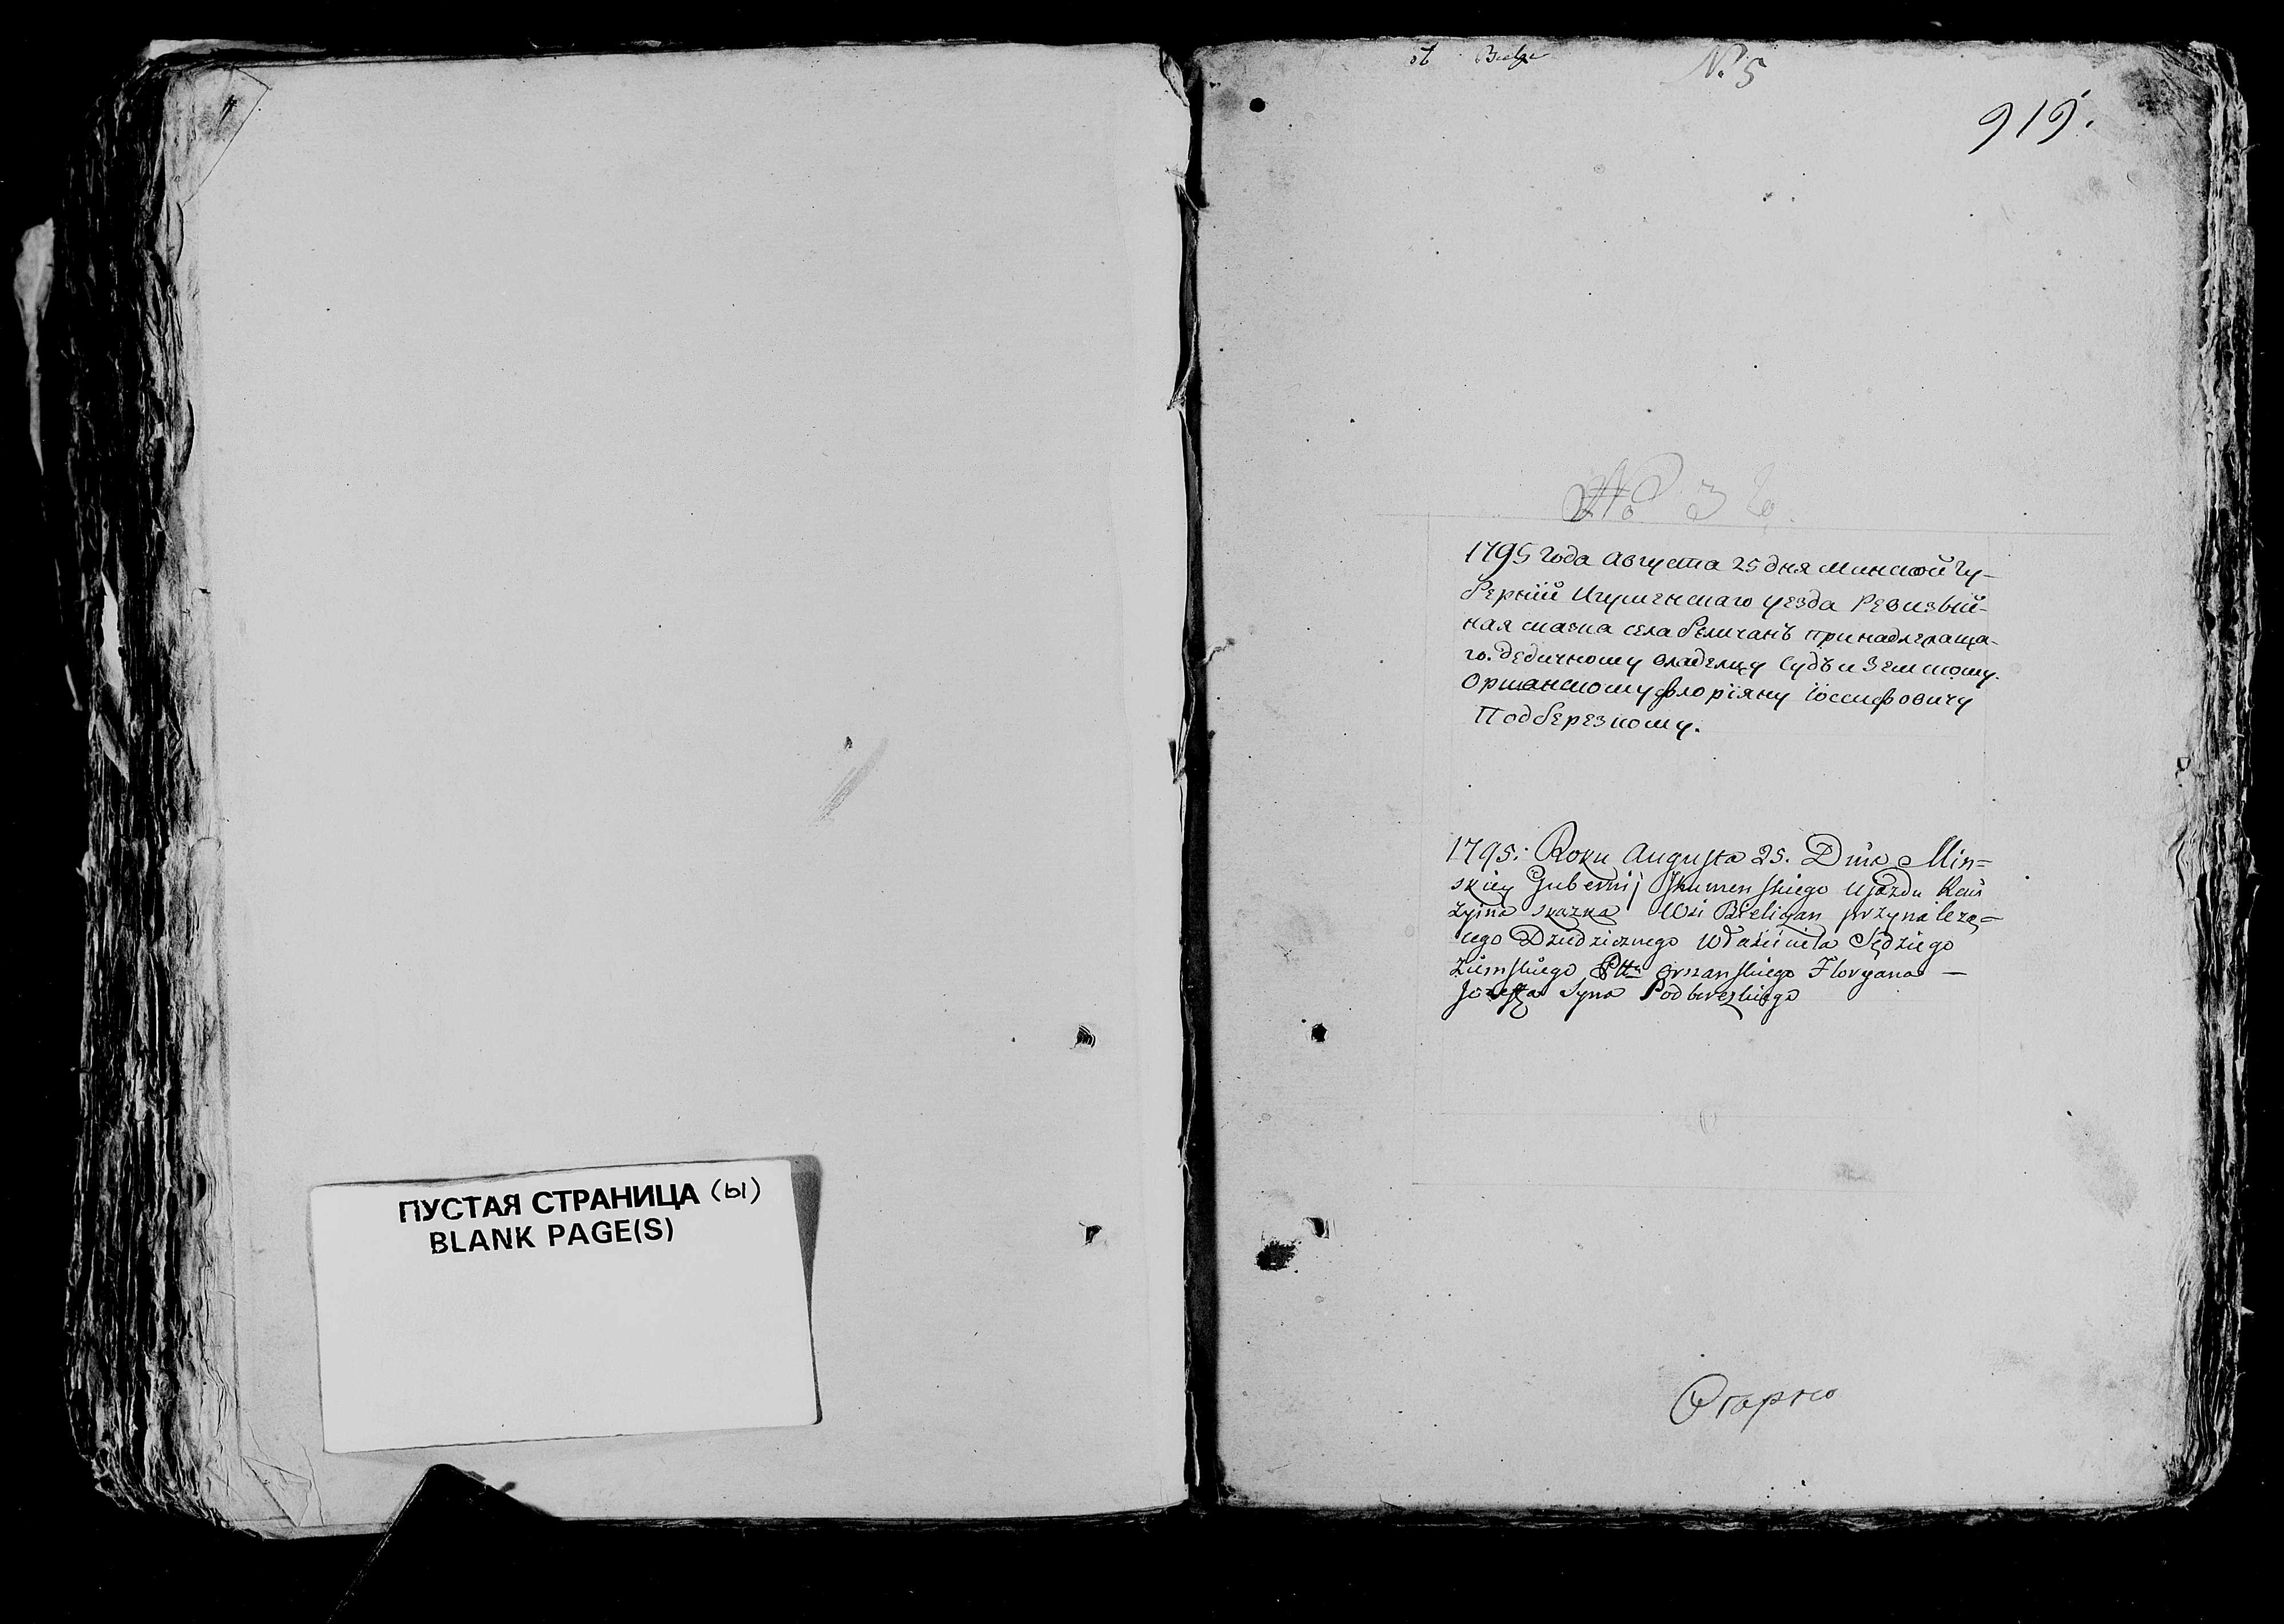 ПУСТАЯ СТРАНИЦА (ы)
BLANK PAGE(S)
№ 5
919.
№ 36.
1795 года августа 25 дня минской гу-
бернии Игуменскаго уезда Ревизый-
ная сказка села беличанъ принадлежаща-
го. дедичному владелцу Судьи Земскому.
Оршанскому флорїяну їосифовичу
Подберезкому.
1795: Roku Augusta 25. Dnia Min=
skiey Gubernij Jhumenskiego Ujazdu Rewi
zyina skazka Wsi Bieliczan przynależą=
cego Dziedzicznego Właściciela Sędziego
Ziemskiego Pttu Orszanskiego Floryana —
Jozefa Syna Podberezkiego